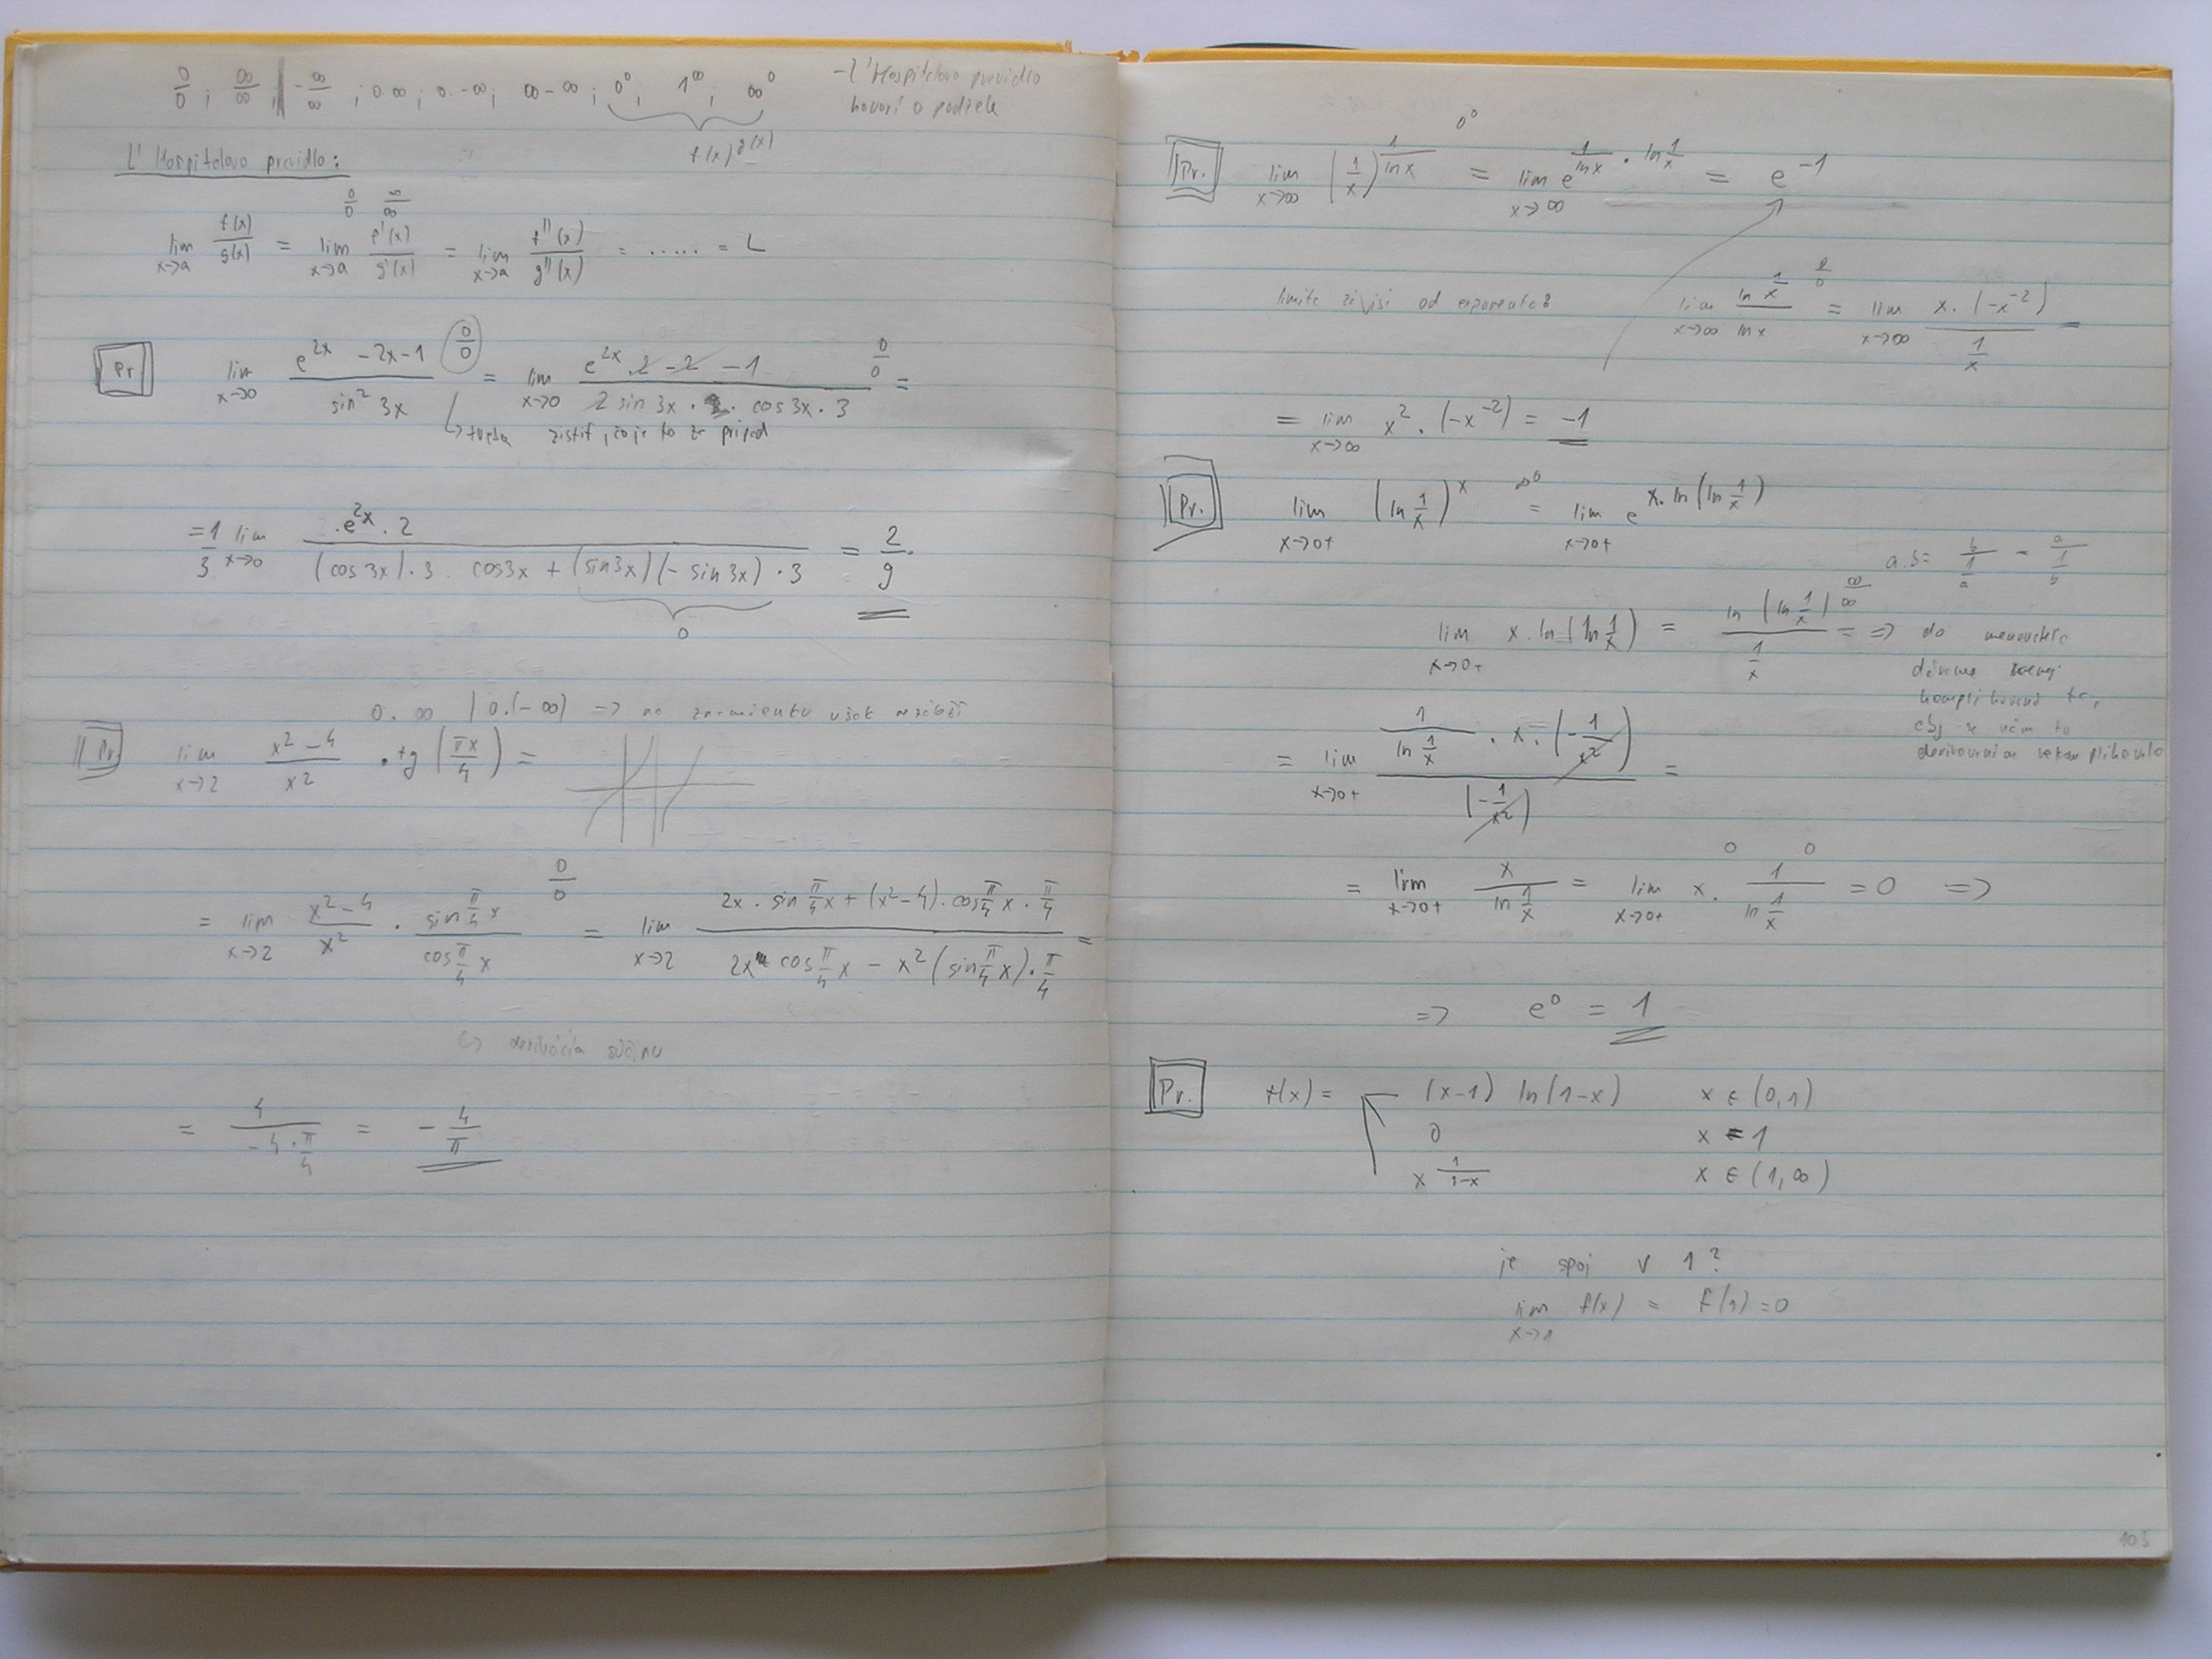 0/0 ; ∞/∞ ; -∞/∞ ; 0.∞ ; 0.-∞ ; ∞-∞ ; 0^0 ; 1^∞ ; ∞^0
f(x)^g(x)
-l'Hospitalovo pravidlo
hovorí o podiele
L' Hospitalovo pravidlo:
0/0 ∞/∞
lim x→a f(x)/g(x) = lim x→a f'(x)/g'(x) = lim x→a f''(x)/g''(x) = ..... = L
Pr lim x→0 (e^2x - 2x - 1)/(sin^2 3x) 0/0 = lim x→0 (e^2x . 2 - 2 - 1)/(2 sin 3x . cos 3x . 3) 0/0 =
↳ treba zistiť, čo je to za prípad
= 1/3 lim x→0 (e^2x . 2)/((cos 3x) . 3 . cos 3x + (sin 3x)(- sin 3x) . 3) = 2/9
0
0.∞ (0.(-∞)) → na znamienku však nezáleží
Pr lim x→2 (x^2 - 4)/x^2 . tg (πx/4) =
= lim x→2 (x^2 - 4)/x^2 . (sin π/4 x)/(cos π/4 x) 0/0 = lim x→2 (2x . sin π/4 x + (x^2 - 4) . cos π/4 x . π/4)/(2x cos π/4 x - x^2 (sin π/4 x) . π/4) =
↳ derivácia súčinu
= 4/(-4 . π/4) = - 4/π
Pr. lim x→∞ (1/x)^(1/ln x) 0^0 = lim x→∞ e^(1/ln x . ln 1/x) = e^-1
limita závisí od exponentu: lim x→∞ (ln 1/x)/(ln x) = lim x→∞ (x . (-x^-2))/(1/x) =
= lim x→∞ x^2 . (-x^-2) = -1
Pr. lim x→0+ (ln 1/x)^x ∞^0 = lim x→0+ e^(x . ln (ln 1/x))
a.b = b/(1/a) = a/(1/b)
lim x→0+ x . ln (ln 1/x) = (ln (ln 1/x))/(1/x) ∞/∞ = ⇒ do menovateľa
dávame menej
komplikovanú fc,
aby sa nám to
derivovaním nekomplikovalo
= lim x→0+ (1/(ln 1/x) . x . (-1/x^2))/(-1/x^2) =
= lim x→0+ x/(ln 1/x) = lim x→0+ x . 1/(ln 1/x) = 0 ⇒
0 0
⇒ e^0 = 1
Pr. f(x) = (x-1) ln(1-x) x ∈ (0,1)
0 x = 1
x^(1/(1-x)) x ∈ (1,∞)
je spoj v 1?
lim x→1 f(x) = f(1) = 0
103